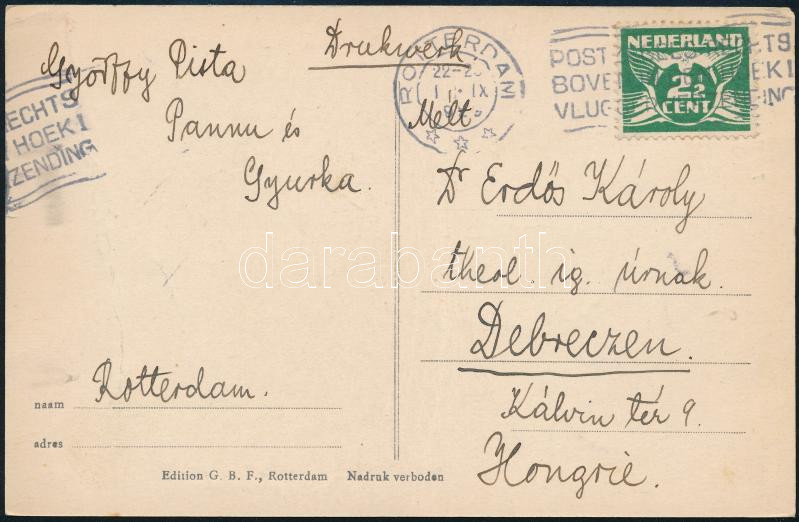 Drukwerk
Györffy Pista
Pannu és
Gyurka.
Rotterdam.
naam
adres
Edition G. B. F., Rotterdam Nadruk verboden
ROTTERDAM
22-2
IX
POST
BOVE
VLUG
RECHTS
HOEK!
ZENDING
NEDERLAND
2½
CENT
Melt.
Dr Erdős Károly
theol. ig. úrnak.
Debreczen.
Kálvin tér 9.
Hongrie.
darabanth